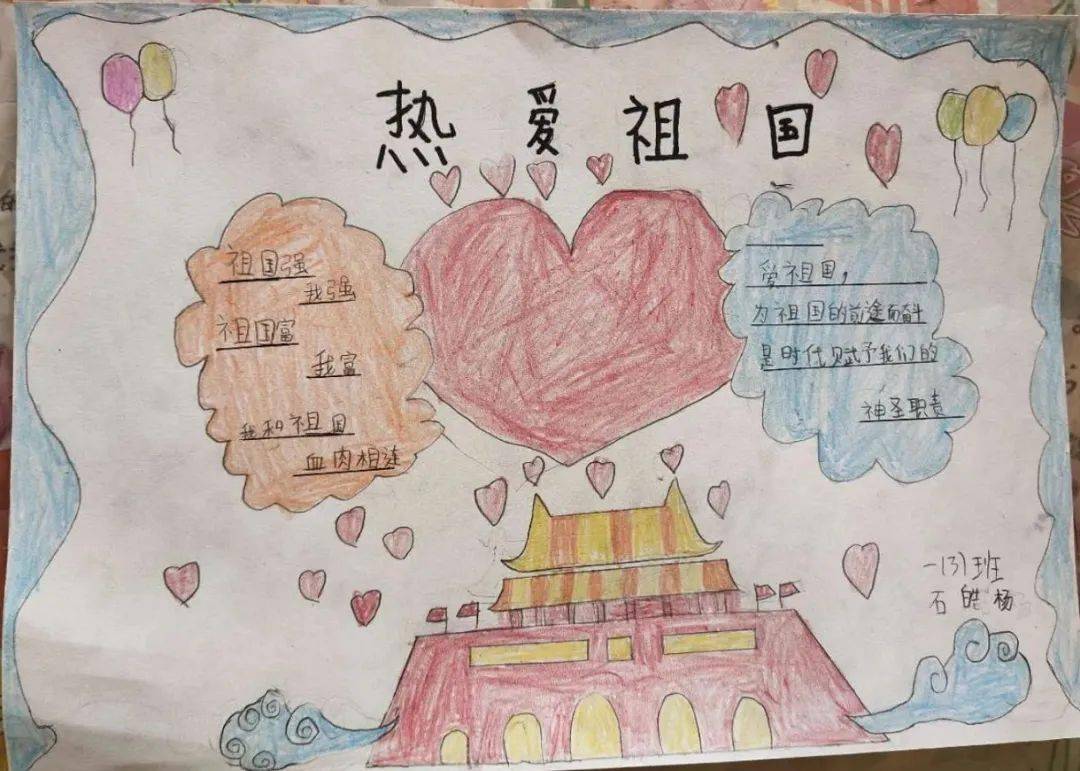 热爱祖国
祖国强
我强
祖国富
我富
我和祖国
血肉相连
爱祖国，
为祖国的前途而奋斗
是时代赋予我们的
神圣职责
一(3)班
石皓杨